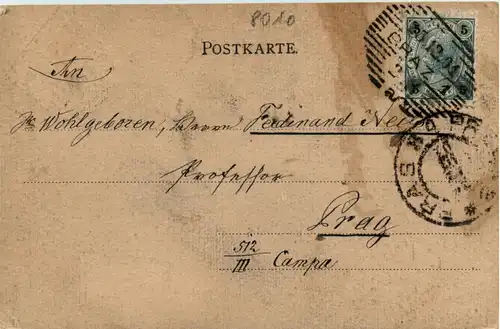 8010
POSTKARTE.
An
Wohlgeboren, Herrn Ferdinand
Professor
Prag
512
III Campa
5 5
GRAZ 1
PRAG